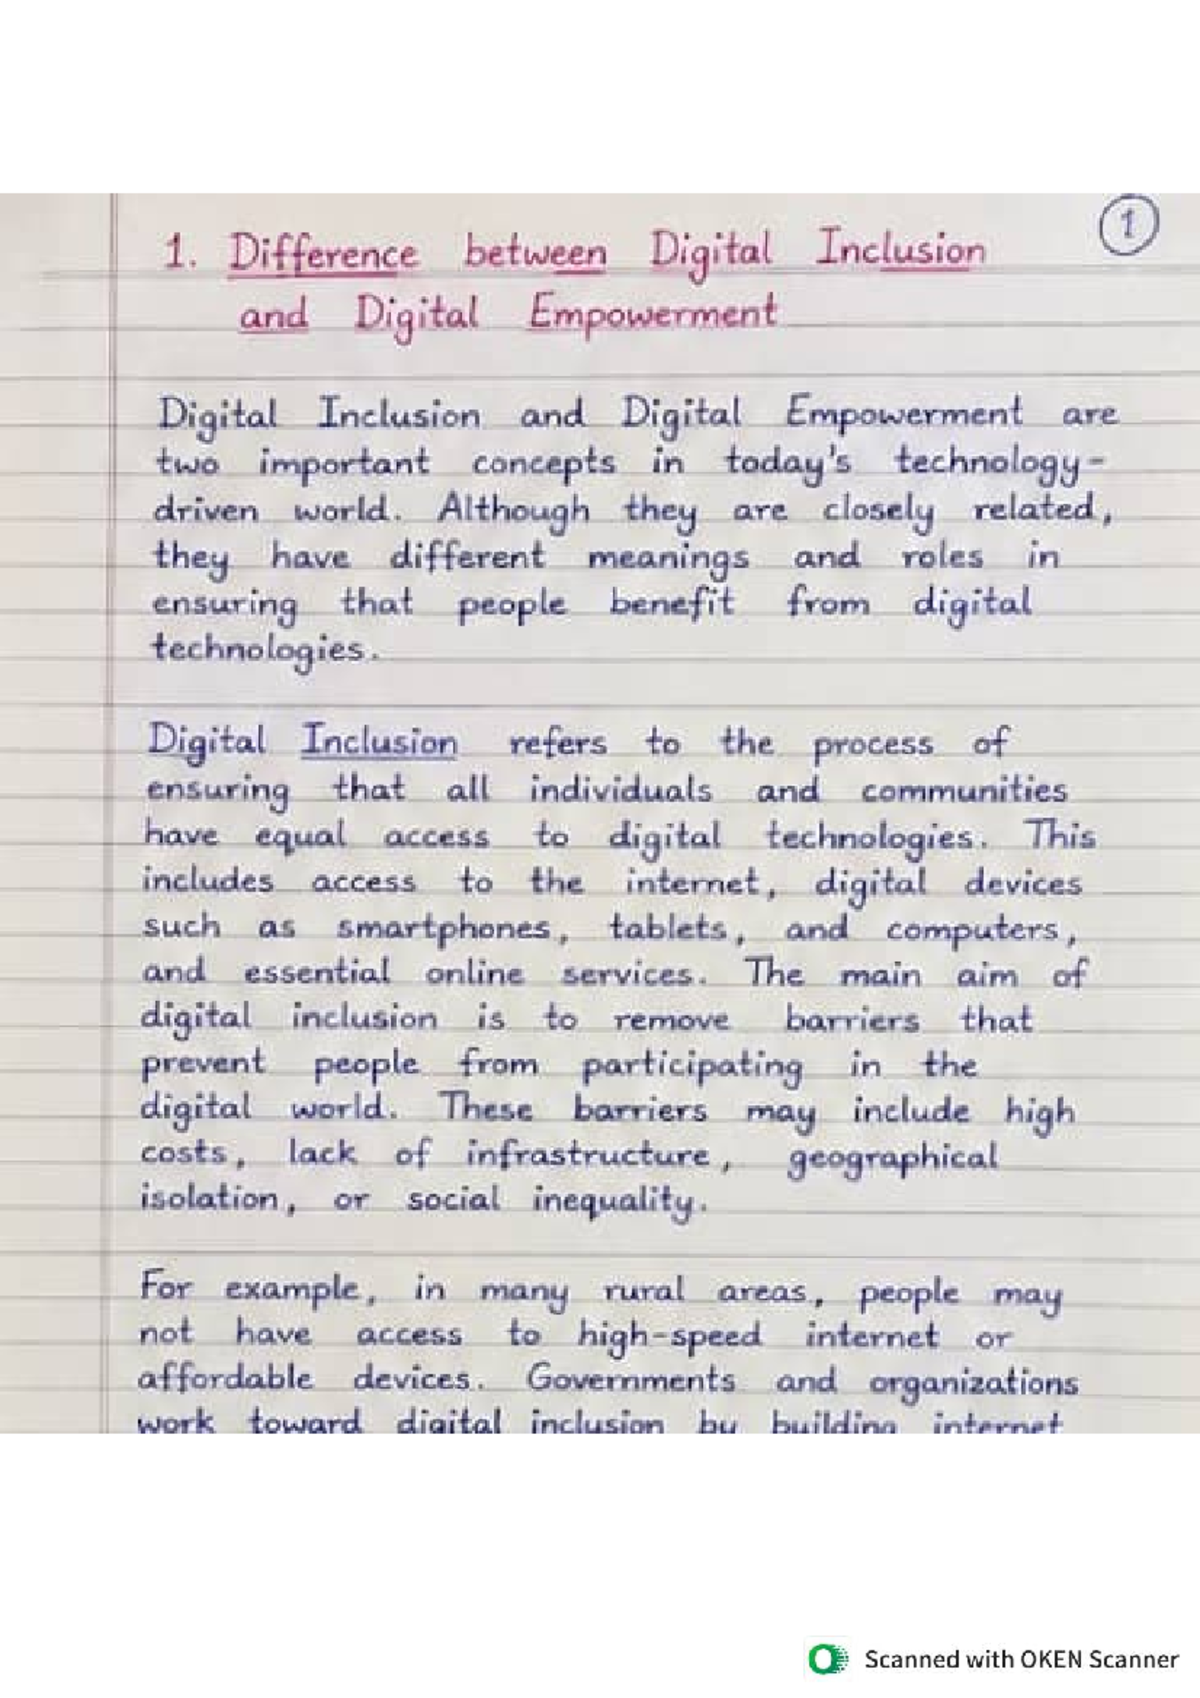 1
1. Difference between Digital Inclusion
and Digital Empowerment
Digital Inclusion and Digital Empowerment are
two important concepts in today's technology-
driven world. Although they are closely related,
they have different meanings and roles in
ensuring that people benefit from digital
technologies.
Digital Inclusion refers to the process of
ensuring that all individuals and communities
have equal access to digital technologies. This
includes access to the internet, digital devices
such as smartphones, tablets, and computers,
and essential online services. The main aim of
digital inclusion is to remove barriers that
prevent people from participating in the
digital world. These barriers may include high
costs, lack of infrastructure, geographical
isolation, or social inequality.
For example, in many rural areas, people may
not have access to high-speed internet or
affordable devices. Governments and organizations
work toward digital inclusion by building internet
Scanned with OKEN Scanner